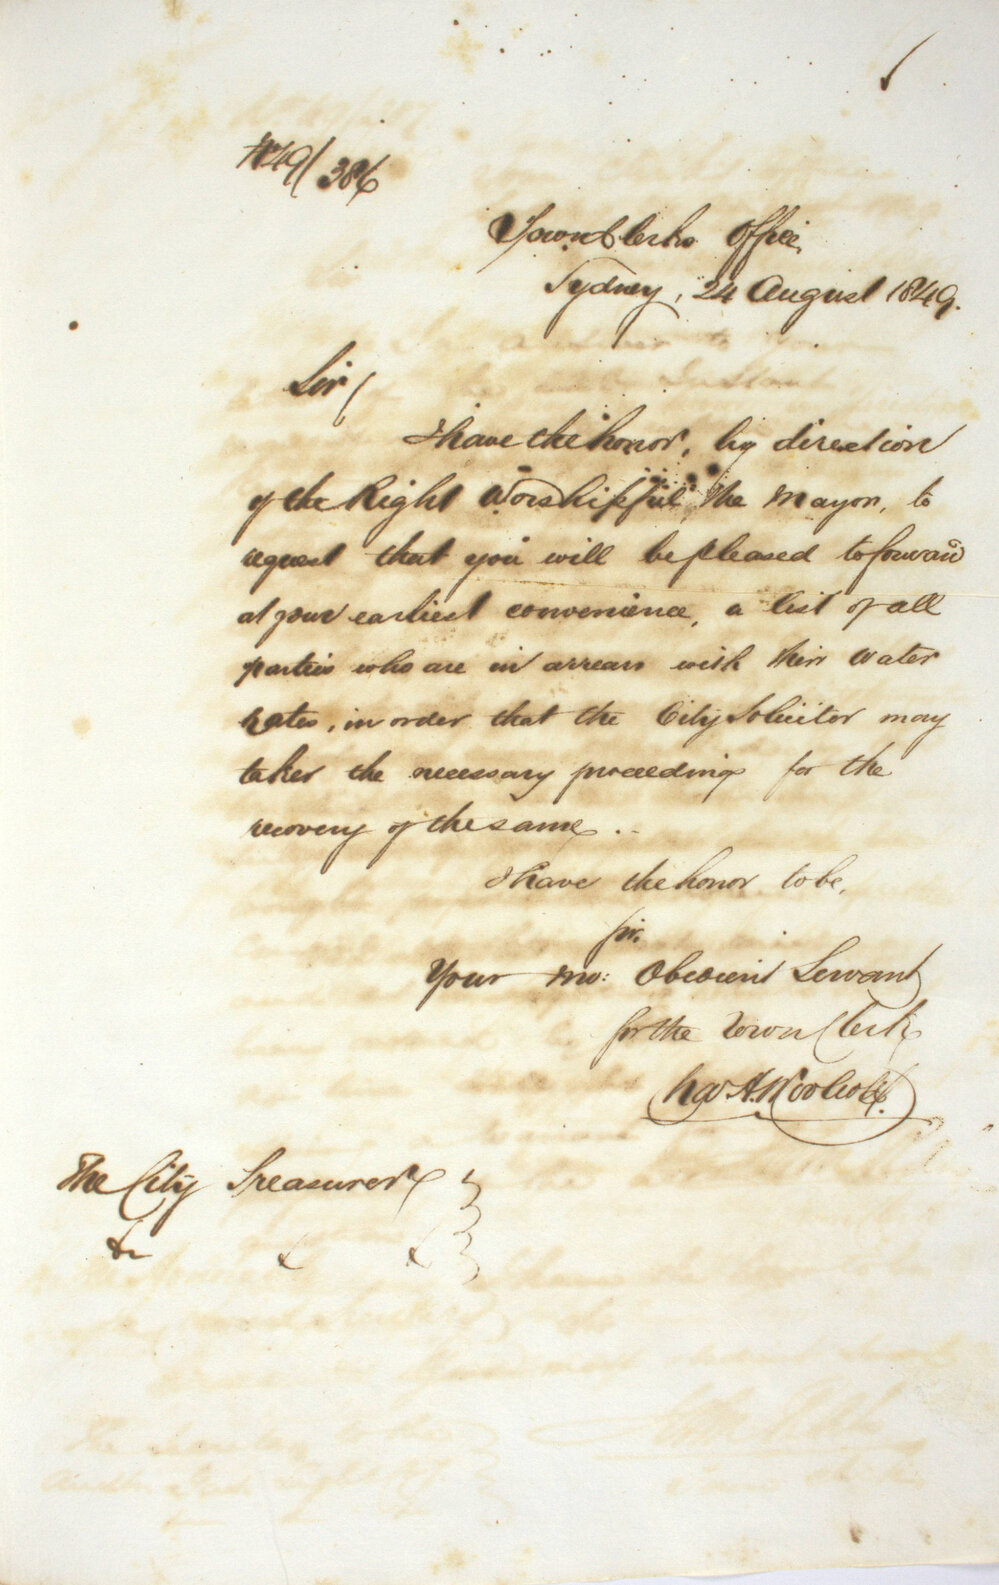 49/386
Town Clerks Office,
Sydney, 24 August 1849.
Sir/
I have the honor, by direction
of the Right Worshipful, the Mayor, to
request that you will be pleased to forward
at your earliest convenience, a list of all
parties who are in arrears with their Water
Rates, in order that the City Solicitor may
take the necessary proceedings for the
recovery of the same.
I have the honor to be,
Sir,
Your mo: Obedient Servant
for the Town Clerk
Chas H. Woolcott.
The City Treasurer
&c &c &c